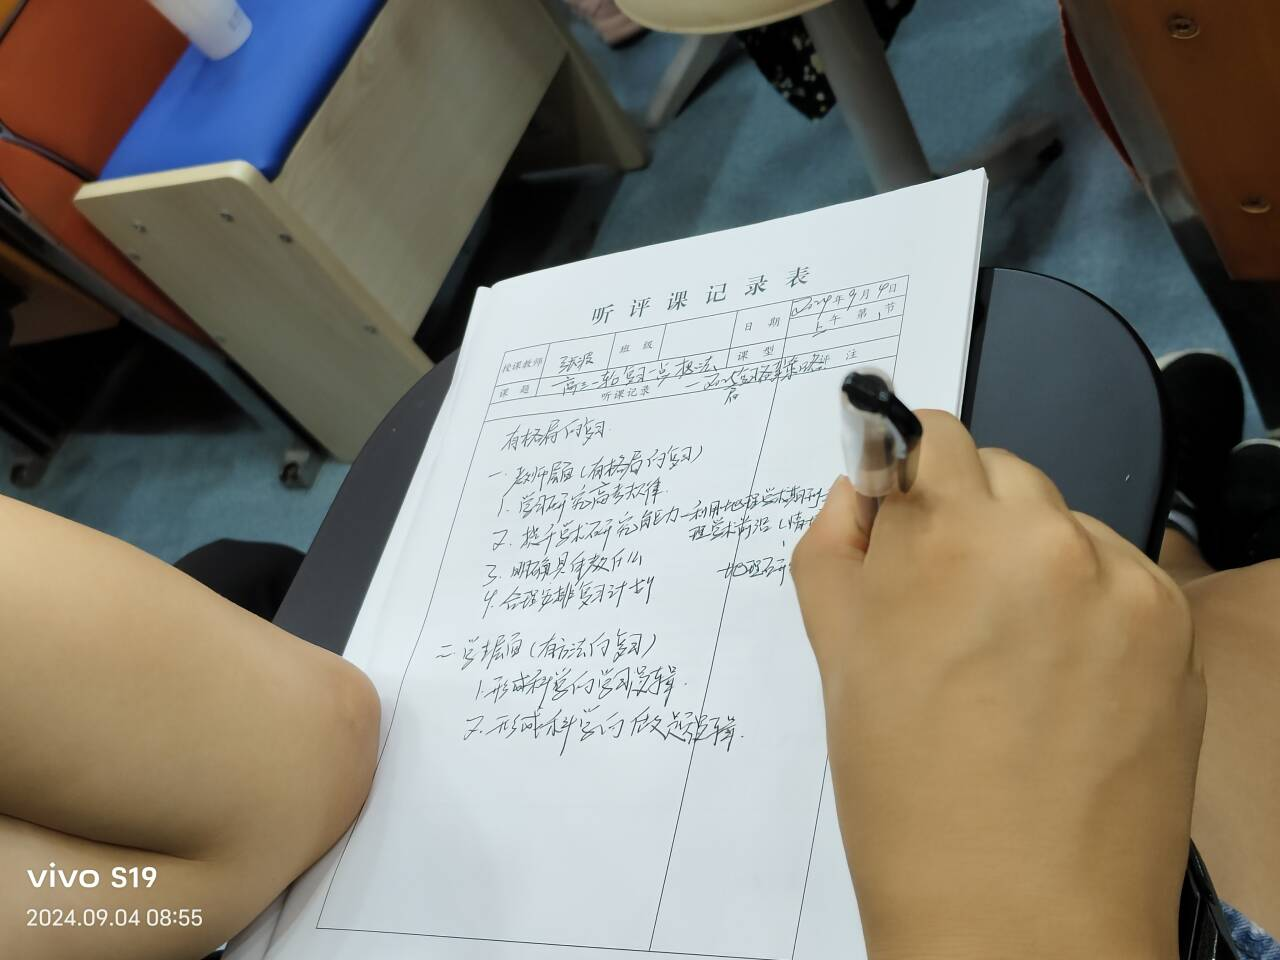 听评课记录表
授课教师 张波 班级 日期 2024年9月4日
上午 第1节
课题 高三一轮复习一些想法 课型
听课记录 评注
有格局的复习
一、教师层面（有格局的复习）
1. 学习研究高考规律.
2. 提升学术研究能力—利用地理学术期刊
理学术前沿（情
3. 明确具体教什么
地理研
4. 合理安排复习计划
二、学生层面（有方法的复习）
1. 形成科学的学习逻辑.
2. 形成科学的做题逻辑.
vivo S19
2024.09.04 08:55